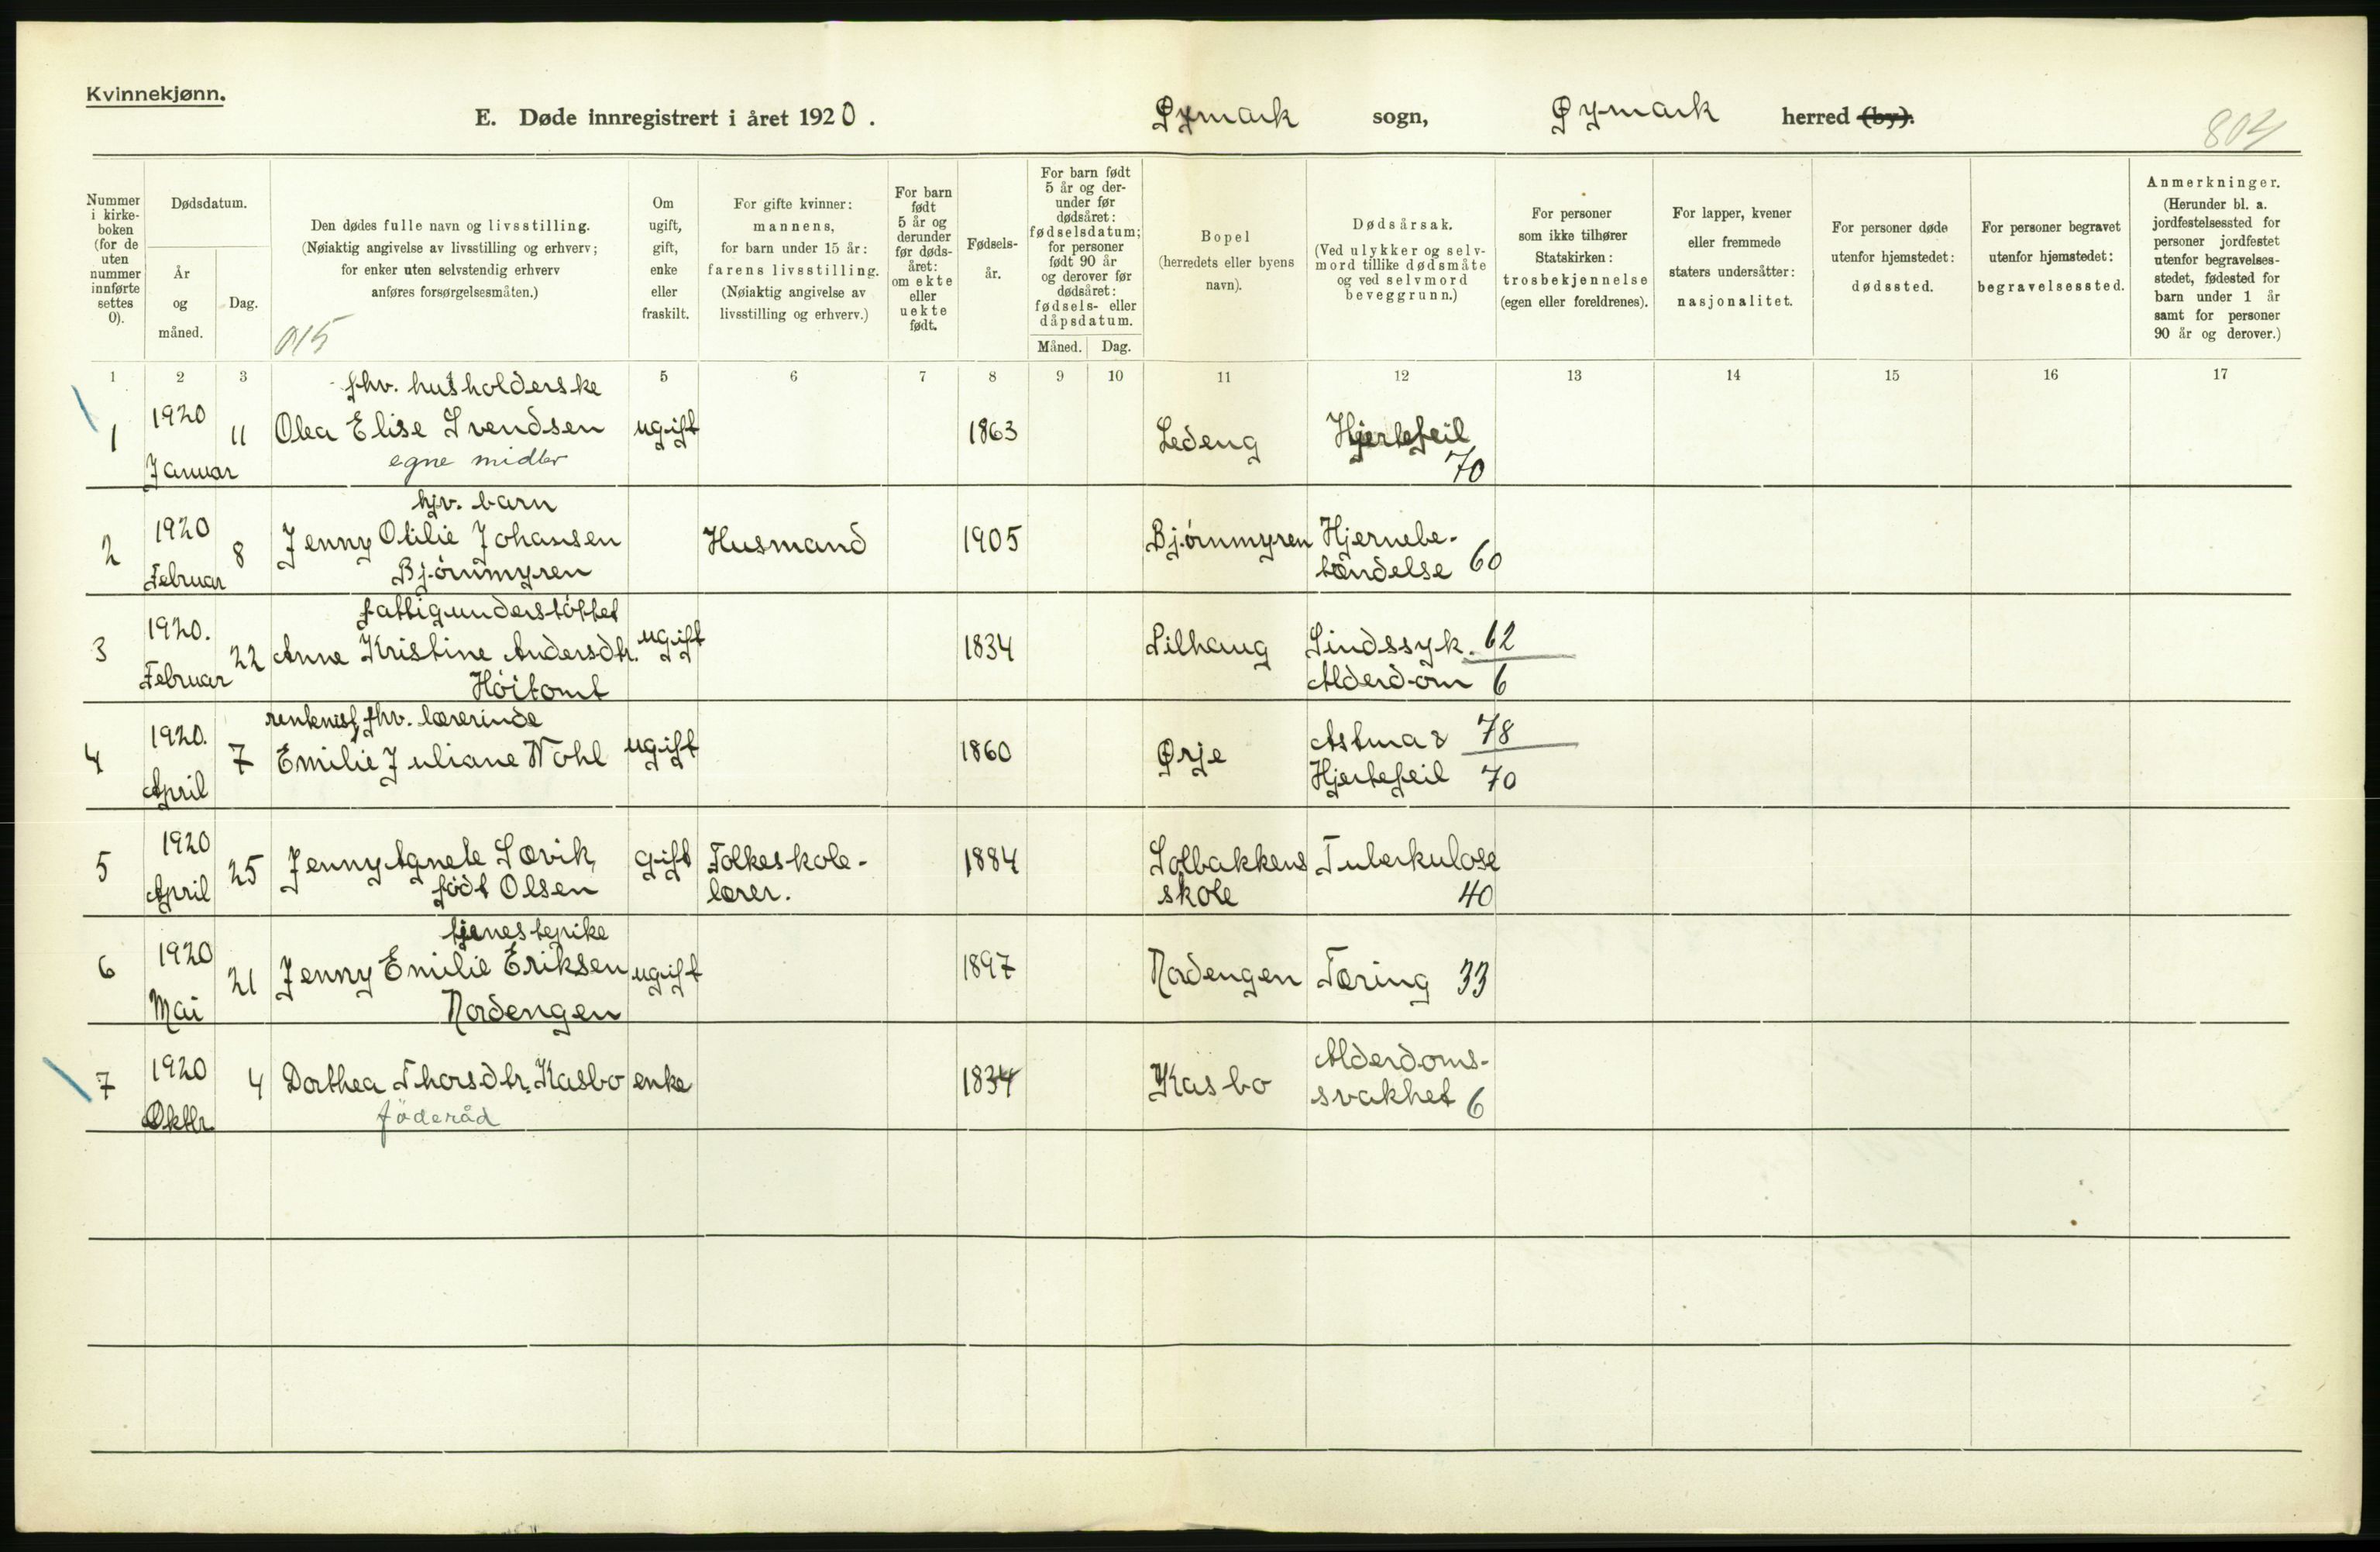 Kvinnekjønn.
E. Døde innregistrert i året 1920. Øymark sogn, Øymark herred (by).
804
Nummer i kirkeboken (for de uten nummer innførte settes 0).
Dødsdatum.
År og måned.
Dag.
Den dødes fulle navn og livsstilling.
(Nøiaktig angivelse av livsstilling og erhverv;
for enker uten selvstendig erhverv
anføres forsørgelsesmåten.)
015
Om ugift, gift, enke eller fraskilt.
For gifte kvinner:
mannens,
for barn under 15 år:
farens livsstilling.
(Nøiaktig angivelse av
livsstilling og erhverv.)
For barn født 5 år og derunder før dødsåret: om ekte eller uekte født.
Fødselsår.
For barn født 5 år og derunder før dødsåret: fødselsdatum; for personer født 90 år og derover før dødsåret: fødsels- eller dåpsdatum.
Måned. Dag.
Bopel
(herredets eller byens
navn).
Dødsårsak.
(Ved ulykker og selvmord tillike dødsmåte
og ved selvmord
beveggrunn.)
For personer
som ikke tilhører
Statskirken:
trosbekjennelse
(egen eller foreldrenes).
For lapper, kvener
eller fremmede
staters undersåtter:
nasjonalitet.
For personer døde
utenfor hjemstedet:
dødssted.
For personer begravet
utenfor hjemstedet:
begravelsessted.
Anmerkninger.
(Herunder bl. a.
jordfestelsessted for
personer jordfestet
utenfor begravelses-
stedet, fødested for
barn under 1 år
samt for personer
90 år og derover.)
1 2 3 5 6 7 8 9 10 11 12 13 14 15 16 17
fhv. husholderske
1 1920 Januar 11 Olea Elise Svendsen ugift 1863 Ledeng Hjertefeil 70
egne midler
hjv. barn
2 1920 Februar 8 Jenny Otilie Johansen Husmand 1905 Bjørnmyren Hjernebe-
Bjørnmyren tændelse 60
fattigunderstøttet
3 1920. Februar 22 Anne Kristine Andersdtr. ugift 1834 Lilhaug Sindssyk. 62
Høitomt Alderdom 6
rentenist, fhv. lærerinde
4 1920. April 7 Emilie Juliane Wohl ugift 1860 Ørje Astma & 78
Hjertefeil 70
5 1920 April 25 Jenny Agnete Løvik, gift Folkeskole- 1884 Solbakkens Tuberkulose
født Olsen lærer. skole 40
tjenestepike
6 1920 Mai 21 Jenny Emilie Eriksen ugift 1897 Nordengen Tæring 33
Nordengen
7 1920 Oktbr 4 Dorthea Thorsdtr. Kasbo enke 1834 Kasbo Alderdoms-
føderåd svakhet 6